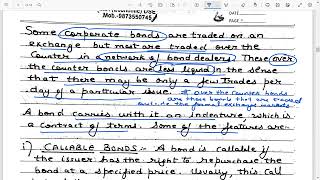 Mob.-9873550745
DATE
PAGE
Some corporate bonds are traded on an
exchange but most are traded over the
Counter in a network of bond dealers. These over
the counter bonds are less liquid in the sense
that there may be only a few trades per
day of a particular issue. * over the counter bonds
are those bonds that are traded
outside the formal exchange markets
A bond carries with it an indenture, which is
a contract of terms. Some of the features are-
i) CALLABLE BONDS:- A bond is callable if
the issuer has the right to repurchase the
bond at a specified price. Usually, this call